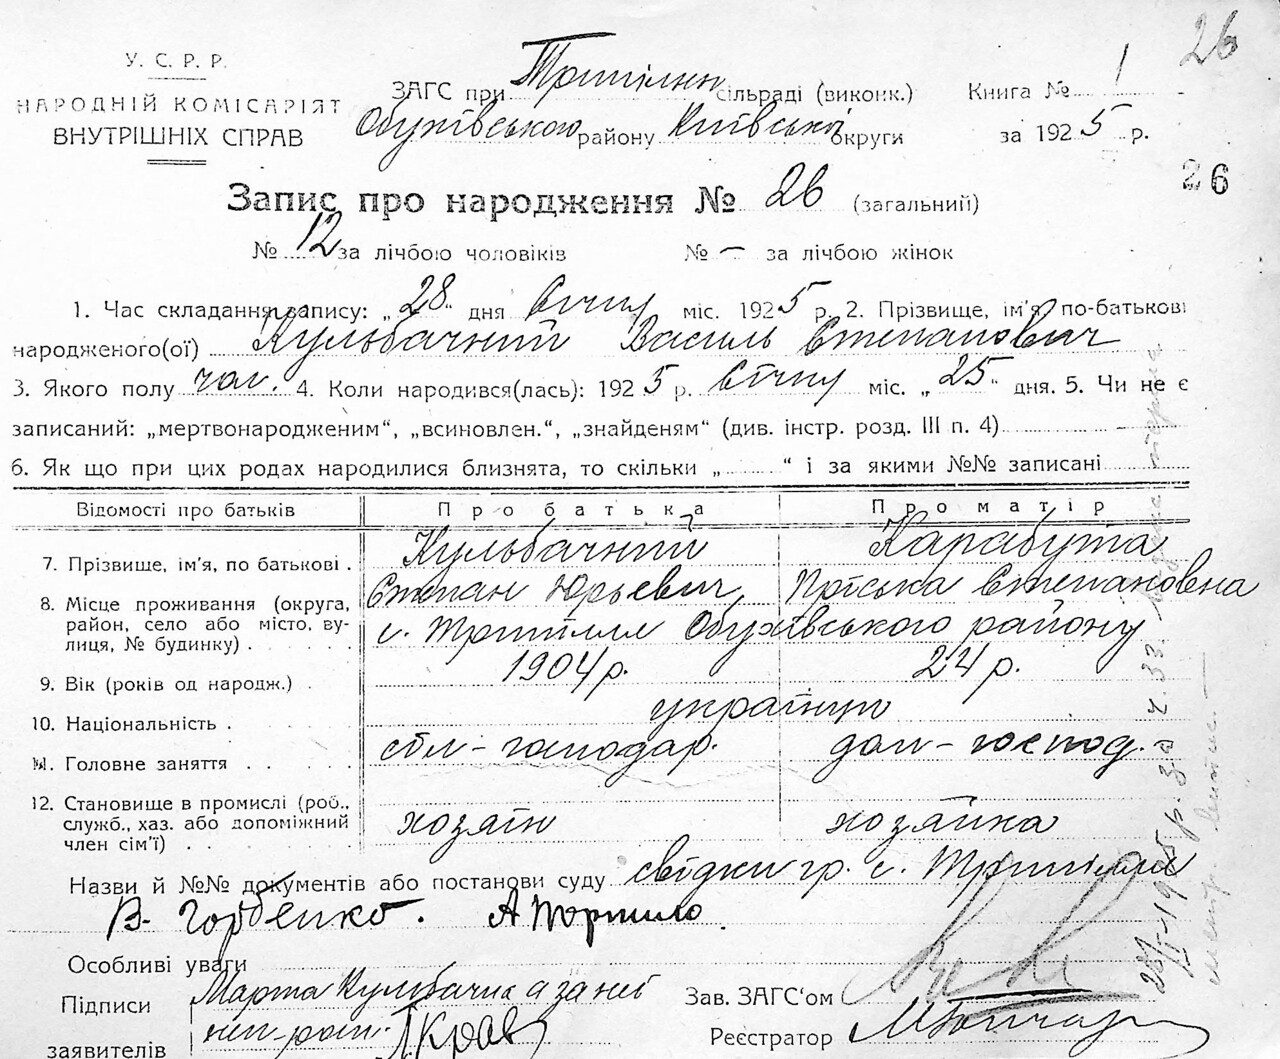 26
У. С. Р. Р.
НАРОДНІЙ КОМІСАРІЯТ
ВНУТРІШНІХ СПРАВ
ЗАГС при Трипіллі сільраді (виконк.) Книга № 1
Обухівського району Київської округи за 1925 р.
26
Запис про народження № 26 (загальний)
№ 12 за лічбою чоловіків № – за лічбою жінок
1. Час складання запису: „28" дня Січня міс. 1925 р. 2. Прізвище, ім'я по-батькові
народженого(ої) Кульбачний Василь Степанович
3. Якого полу чол. 4. Коли народився(лась): 1925 р. Січня міс. „25" дня. 5. Чи не є
записаний: „мертвонародженим", „всиновлен.", „знайденям" (див. інстр. розд. III п. 4) —
6. Як що при цих родах народилися близнята, то скільки „ " і за якими №№ записані
Відомості про батьків Про батька Про матір
7. Прізвище, ім'я, по батькові . Кульбачний Карабута
Степан Юрьевич, Пріська Степановна
8. Місце проживання (округа, район, село або місто, ву-
лиця, № будинку) . с. Трипілля Обухівського району
9. Вік (років од народж.) . 1904 р. 24 р.
10. Національність . українці
11. Головне заняття . сіл-господар. дом-господ.
12. Становище в промислі (роб., служб., хаз. або допоміжний
член сім'ї) . хозяїн хозяйка
Назви й №№ документів або постанови суду свідки гр. с. Трипілля
В. Горбенко. А Торпило
Особливі уваги
Підписи Марта Кульбачна а за неї
заявителів неп-рост. Крав
Зав. ЗАГС'ом
Реєстратор М Гончар